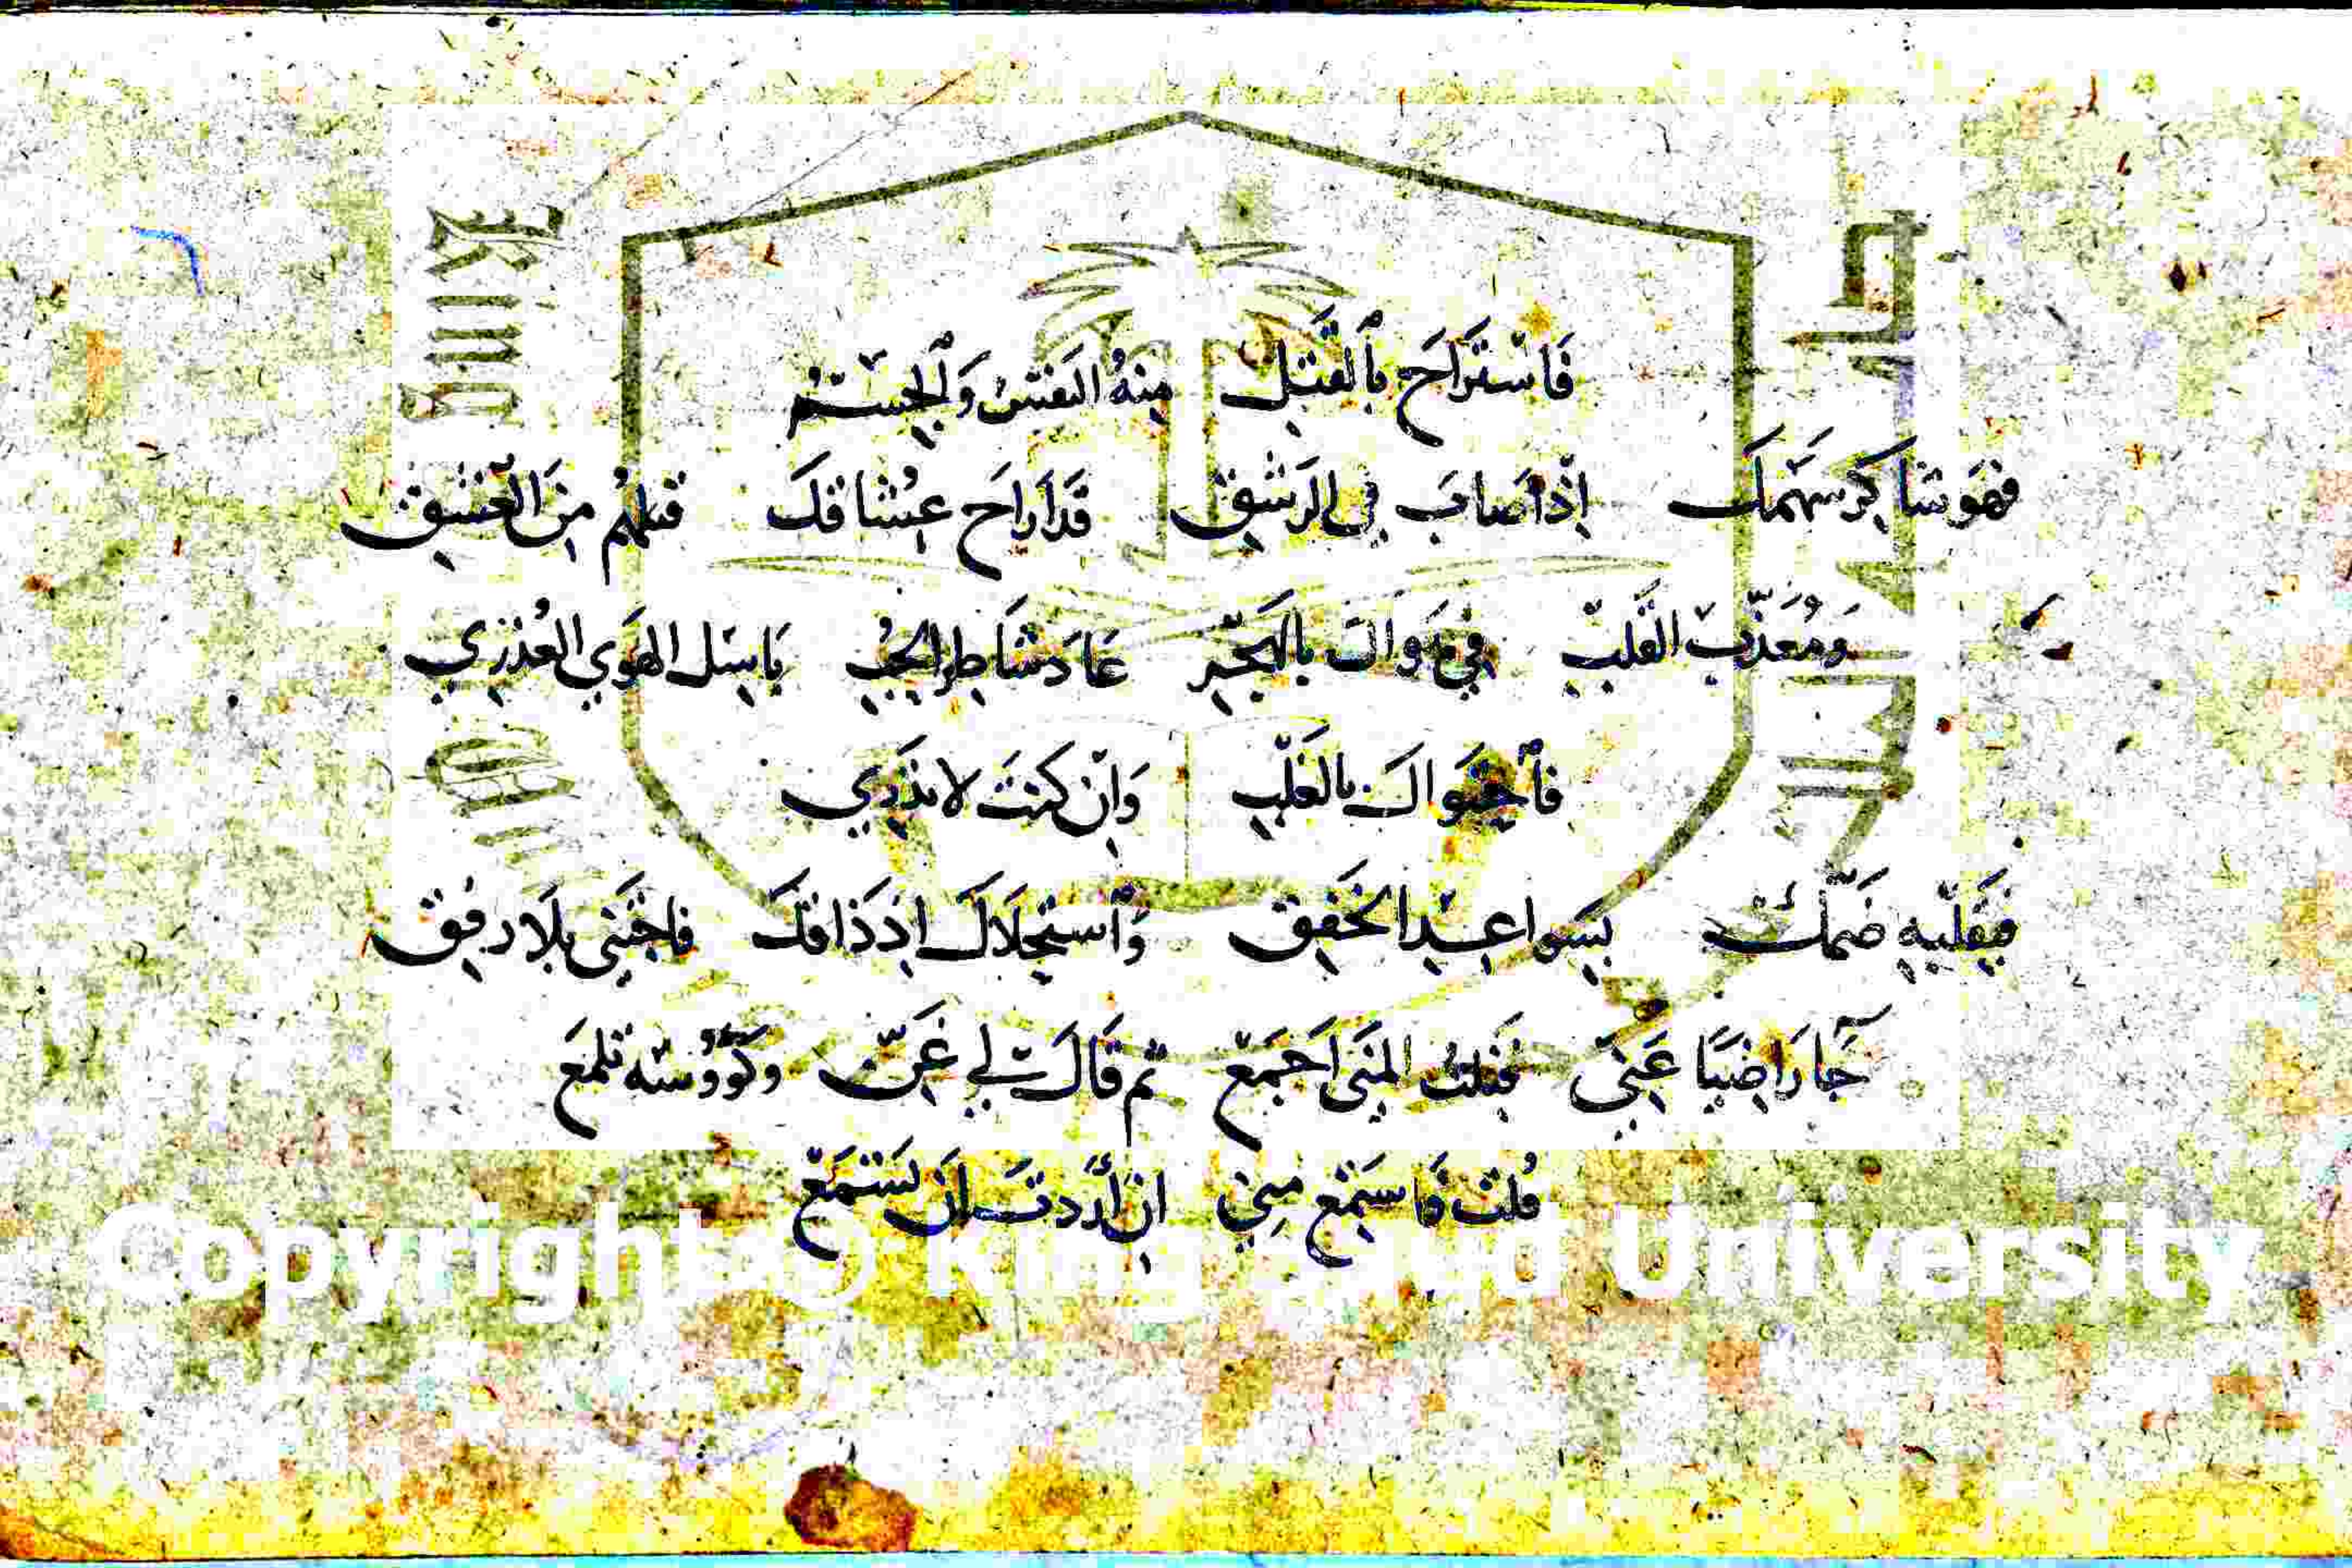 فَاسْتَرَاحَ بِالْقَتْلِ مِنْهُ النَفْسُ وَالْجِسْمُ
فهَو شاكر سهَمكَ اِذا صابَ فِي الرَشْقِ قَد اَراحَ عِشاقكَ قتلهُم مِنَ العشقِ
وَمُعَذّبَ القَلبْ فِي هَواكَ بالهَجْرِ عَادَ شَاطِر الحُبِ بَاسِل الهَوي العُذرِي
فأحتوَاكَ بالقَلْبِ وَاِنْ كنتَ لا تَدْرِي
فبقَلْبِهِ ضمّكْ بِسَواعِدِ الخَفِقِ وَاَستحِلَاكَ اِذ ذَاقكَ فاجْتَنى بِلَا رفِقِ
جَا رَاضيًا عَنِي فَنِلتُ المِنَى اَجْمَعْ ثم قَالَ لِي غَنِّ وكؤوُسُه تلمَعَ
قُلت فَاسْتمِع مِنِي اِن اَردتَ اَن تَسْتَمَعْ
Copyright © King Saud University